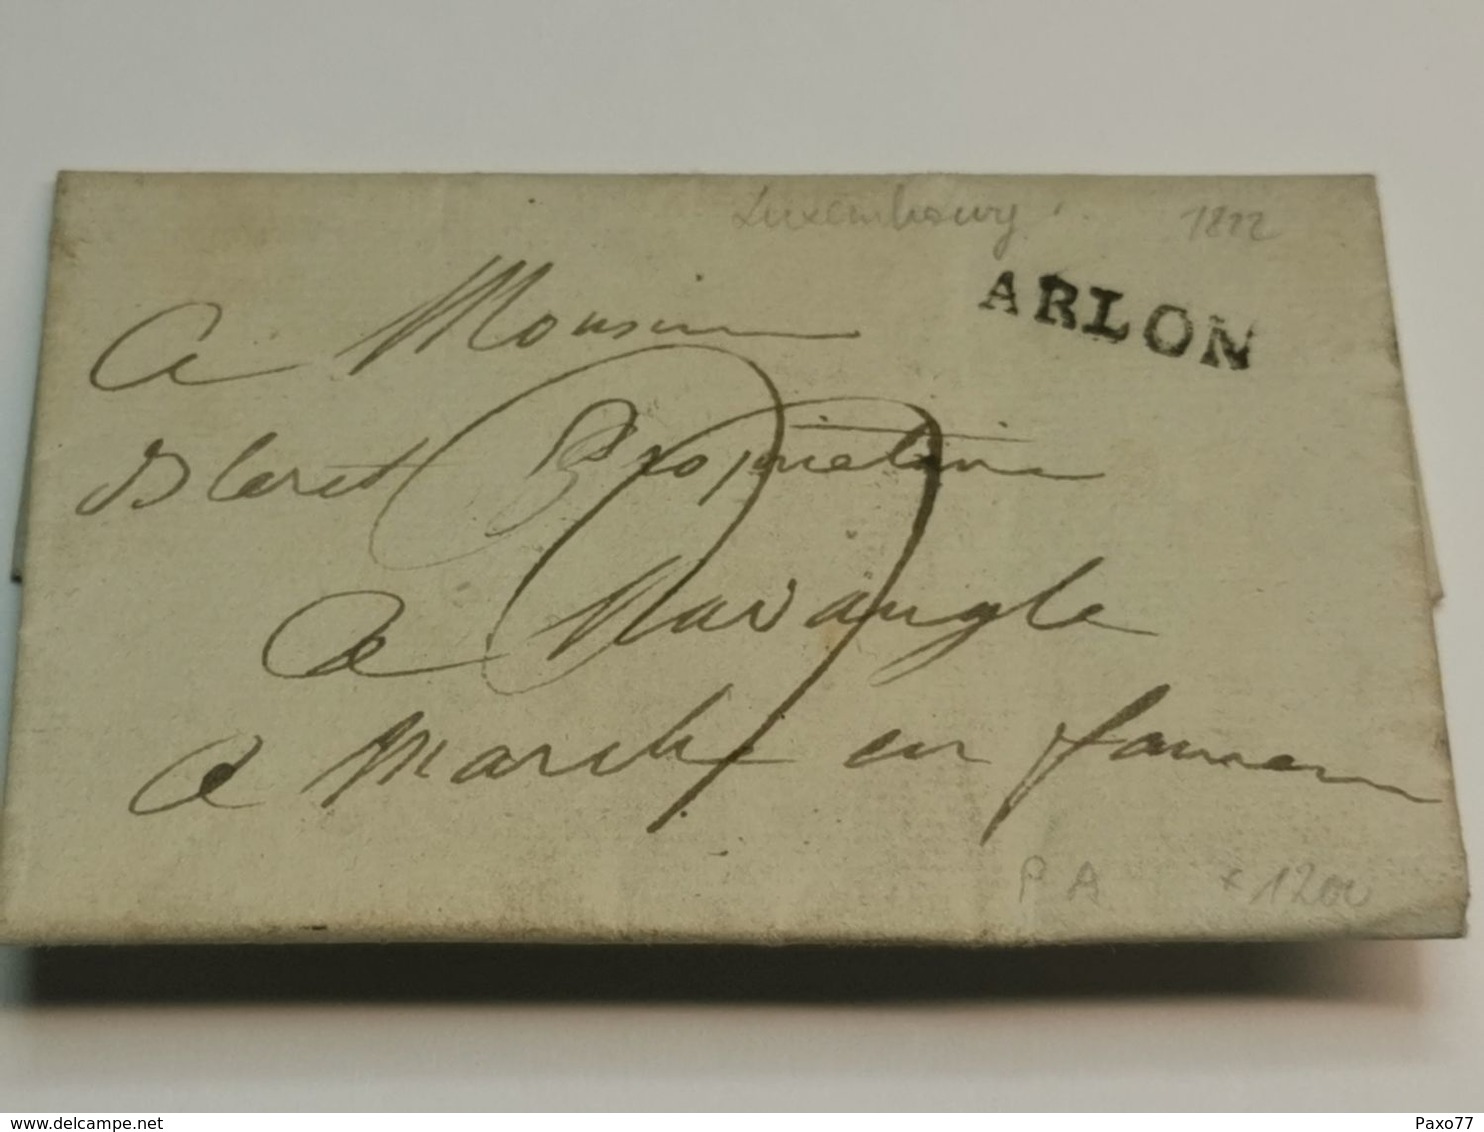 Luxembourg 1822
ARLON
A Monsieur
Blaret Propriétaire
a Navaugle
a Marche en famenne
P A x 1200
www.delcampe.net Paxo77